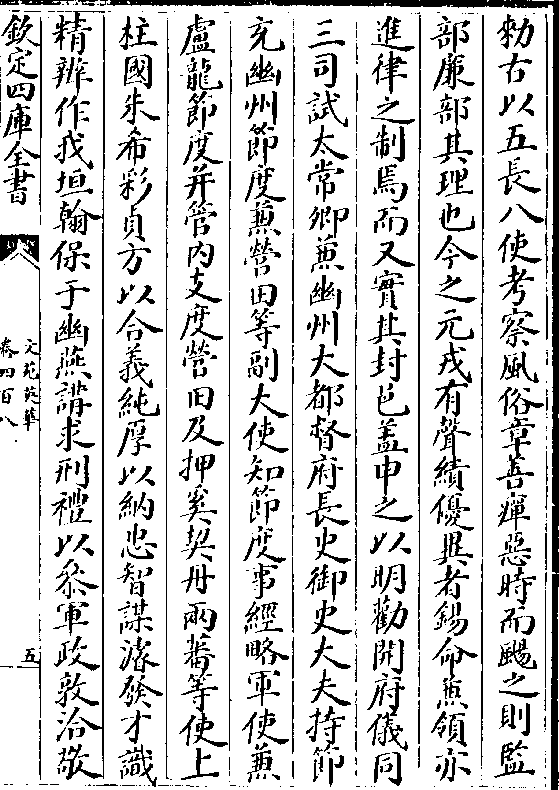 勅古以五長八使考察風俗章善癉惡時而颺之則監
部廉部其理也今之元戎有聲績優異者錫命兼領亦
進律之制焉而又實其封邑蓋申之以明勸開府儀同
三司試太常卿兼幽州大都督府長史御史大夫持節
充幽州節度兼營田等副大使知節度事經略軍使兼
盧龍節度并管内支度營田及押奚契丹兩蕃等使上
柱國朱希彩貞方以合義純厚以納忠智謀濬發才識
精辨作我垣翰保于幽燕講求刑禮以叅軍政敦洽敬
欽定四庫全書
文苑英華
卷四百八
五